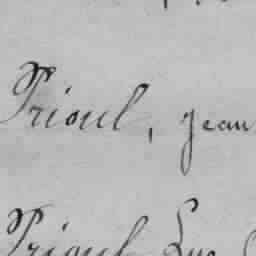 Prioul, jean
Prioul Luc